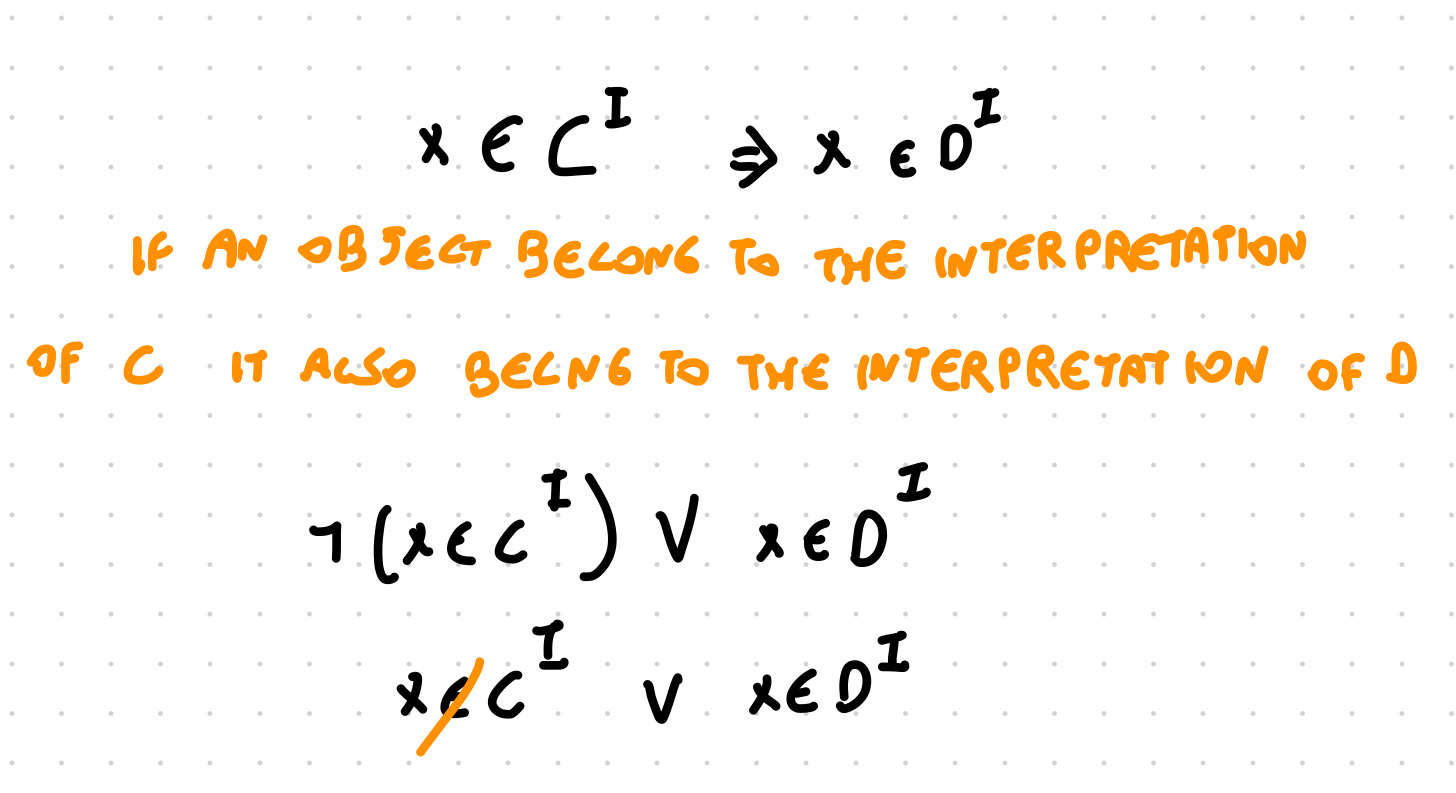 x ∈ C^I ⇒ x ∈ D^I
IF AN OBJECT BELONG TO THE INTERPRETATION
OF C IT ALSO BELNG TO THE INTERPRETATION OF D
¬(x ∈ C^I) ∨ x ∈ D^I
x ∉ C^I ∨ x ∈ D^I